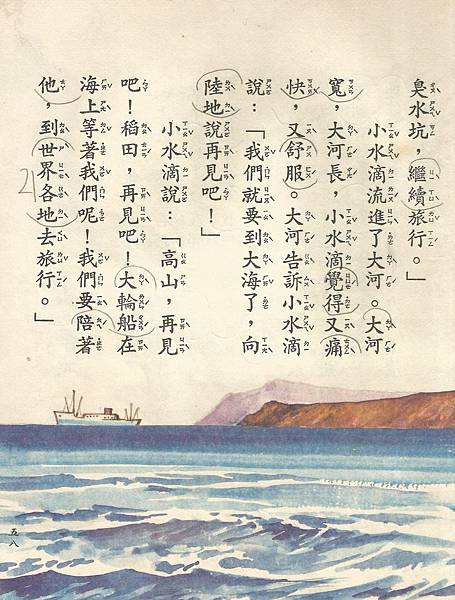 臭水坑，繼續旅行。」
小水滴流進了大河。大河
寬，大河長，小水滴覺得又痛
快，又舒服。大河告訴小水滴
說：「我們就要到大海了，向
陸地說再見吧！」
小水滴說：「高山，再見
吧！稻田，再見吧！大輪船在
海上等著我們呢！我們要陪著
他，到世界各地去旅行。」
21
五八